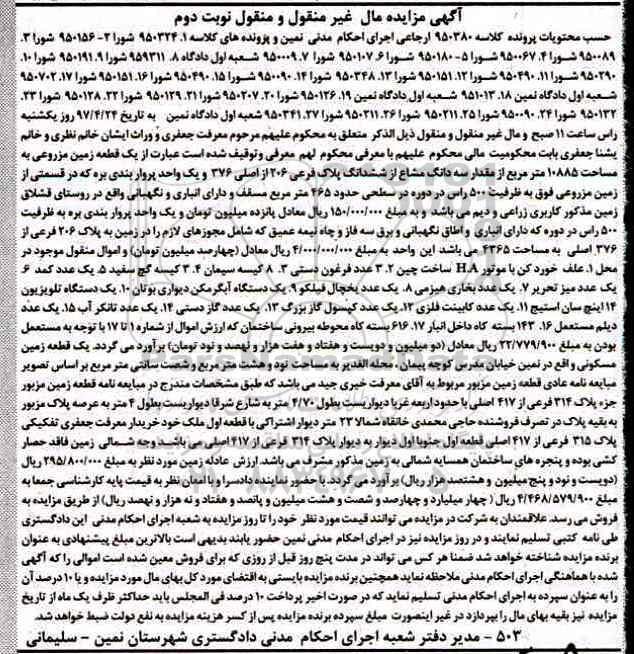 آگهی مزایده مال غیر منقول و منقول نوبت دوم
حسب محتویات پرونده کلاسه ۹۵۰۳۸۰ ارجاعی اجرای احکام مدنی نمین و پرونده های کلاسه ۱. ۹۵۰۳۲۴ شورا ۲- ۹۵۰۱۵۶ شورا ۳.
۹۵۰۰۸۹ شورا ۴. ۹۵۰۰۶۷ شورا ۵- ۹۵۰۱۸۰ شورا ۶. ۹۵۰۱۰۷ شورا ۷. ۹۵۰۰۰۹ شعبه اول دادگاه ۸. ۹۵۹۳۱۱ شورا ۹. ۹۵۰۱۹۱ شورا ۱۰.
۹۵۰۲۹۰ شورا ۱۱. ۹۵۰۴۹۰ شورا ۱۲. ۹۵۰۱۵۱ شورا ۱۳. ۹۵۰۳۴۸ شورا ۱۴. ۹۵۰۰۹۰ شورا ۱۵. ۹۵۰۴۹۰ شورا ۱۶. ۹۵۰۱۵۱ شورا ۱۷. ۹۵۰۷۰۲
شعبه اول دادگاه نمین ۱۸. ۹۵۱۰۱۳ شعبه اول دادگاه نمین ۱۹. ۹۵۰۱۲۶ شورا ۲۰. ۹۵۰۲۰۷ شورا ۲۱. ۹۵۰۱۲۹ شورا ۲۲. ۹۵۰۱۲۸ شورا ۲۳.
۹۵۰۱۳۲ شورا ۲۴. ۹۵۰۰۹۰ شورا ۲۵. ۹۵۰۲۱۱ شورا ۲۶. ۹۵۰۲۱۱ شورا ۲۷. ۹۵۰۳۴۱ شعبه اول دادگاه نمین به تاریخ ۹۷/۴/۲۴ روز یکشنبه
راس ساعت ۱۱ صبح و مال غیر منقول و منقول ذیل الذکر متعلق به محکوم علیهم مرحوم معرفت جعفری و وراث ایشان خانم نظری و خانم
یشنا جعفری بابت محکومیت مالی محکوم علیهم با معرفی محکوم لهم معرفی و توقیف شده است عبارت از یک قطعه زمین مزروعی به
مساحت ۱۰۸۸۵ متر مربع از مقدار سه دانگ مشاع از ششدانگ پلاک فرعی ۲۰۶ از اصلی ۳۷۶ و یک واحد پروار بندی بره که در قسمتی از
زمین مزروعی فوق به ظرفیت ۵۰۰ راس در دوره در سطحی حدود ۴۶۵ متر مربع مسقف و دارای انباری و نگهبانی واقع در روستای قشلاق
زمین مذکور کاربری زراعی و دیم می باشد و به مبلغ ۱۵۰/۰۰۰/۰۰۰ ریال معادل پانزده میلیون تومان و یک واحد پروار بندی بره به ظرفیت
۵۰۰ راس در دوره که دارای انباری و اطاق نگهبانی و برق سه فاز و چاه نیمه عمیق که شامل مجوزهای لازم را در زمین به پلاک ۲۰۶ فرعی از
۳۷۶ اصلی به مساحت ۴۳۶۵ می باشد این واحد به مبلغ ۴/۰۰۰/۰۰۰/۰۰۰ ریال معادل (چهارصد میلیون تومان) و اموال منقول موجود در
محل ۱. علف خورد کن با موتور HA ساخت چین ۲. ۳ عدد فرغون دستی ۳. ۸ کیسه سیمان ۴. ۳ کیسه گچ سفید ۵. یک عدد کمد ۶.
یک عدد میز تحریر ۷. یک عدد بخاری هیزمی ۸. یک عدد یخچال فیلکو ۹. یک دستگاه آبگرمکن دیواری بوتان ۱۰. یک دستگاه تلویزیون
۱۴ اینچ سان استیج ۱۱. یک عدد کابینت فلزی ۱۲. یک عدد کپسول گاز بزرگ ۱۳. یک عدد گاز دستی ۱۴. یک عدد تانکر آب ۱۵. یک عدد
دیلم مستعمل ۱۶. ۱۴۳ بسته کاه داخل انبار ۱۷. ۶۱۶ بسته کاه محوطه بیرونی ساختمان که ارزش اموال از شماره ۱ تا ۱۷ با توجه به مستعمل
بودن به مبلغ ۲۲/۷۷۹/۹۰۰ ریال معادل (دو میلیون و دویست و هفتاد و هفت هزار و نهصد و نود تومان) برآورد می گردد. یک قطعه زمین
مسکونی واقع در نمین خیابان مدرس کوچه پیمان، محله الغدیر به مساحت نود و هشت متر مربع و شصت سانتی متر مربع بر اساس تصویر
مبایعه نامه عادی قطعه زمین مزبور مربوط به آقای معرفت خبری جید می باشد که طبق مشخصات مندرج در مبایعه نامه قطعه زمین مزبور
جزء پلاک ۳۱۴ فرعی از ۴۱۷ اصلی با حدود اربعه غربا دیواریست بطول ۴/۷۰ متر به شارع شرقا دیواریست بطول ۴ متر به عرصه پلاک مزبور
به بقیه پلاک در تصرف فروشنده حاجی محمدی خانقاه شمالا ۲۳ متر دیوار اشتراکی با قطعه اول ملک خود خریدار معرفت جعفری تفکیکی
پلاک ۳۱۵ فرعی از ۴۱۷ اصلی قطعه اول جنوبا اول دیوار به دیوار پلاک ۳۱۴ فرعی از ۴۱۷ اصلی می باشند وجه شمالی زمین فاقد حصار
کشی بوده و پنجره های ساختمان همسایه شمالی به زمین مذکور مشرف می باشد. ارزش عادله زمین مورد نظر به مبلغ ۲۹۵/۸۰۰/۰۰۰ ریال
(دویست و نود و پنج میلیون و هشتصد هزار ریال) برآورد می گردد. با حضور نماینده دادسرا و با امعان نظر به قیمت پایه کارشناسی جمعا به
مبلغ ۴/۴۶۸/۵۷۹/۹۰۰ ریال ( چهار میلیارد و چهارصد و شصت و هشت میلیون و پانصد و هفتاد و نه هزار و نهصد ریال) از طریق مزایده به
فروش می رسد. علاقمندان به شرکت در مزایده می توانند قیمت مورد نظر خود را تا روز مزایده به شعبه اجرای احکام مدنی این دادگستری
طی نامه کتبی تسلیم نمایند و در روز مزایده نیز در اجرای احکام مدنی نمین حضور یابند بدیهی است بالاترین مبلغ پیشنهادی به عنوان
برنده مزایده شناخته خواهد شد ضمنا هر کس می تواند در مدت پنج روز قبل از روزی که برای فروش معین شده است اموالی را که آگهی
شده با هماهنگی اجرای احکام مدنی ملاحظه نماید همچنین برنده مزایده بایستی به اقتضای مورد کل بهای مال مورد مزایده و یا ۱۰ درصد آن
را به عنوان سپرده به اجرای احکام مدنی تسلیم نماید که در صورت اخیر پرداخت ۱۰ درصد فی المجلس باید حداکثر ظرف یک ماه از تاریخ
مزایده نیز بقیه بهای مال را بپردازد در غیر اینصورت مبلغ سپرده برنده مزایده پس از کسر هزینه مزایده به نفع دولت ضبط خواهد شد.
۵۰۳ - مدیر دفتر شعبه اجرای احکام مدنی دادگستری شهرستان نمین - سلیمانی